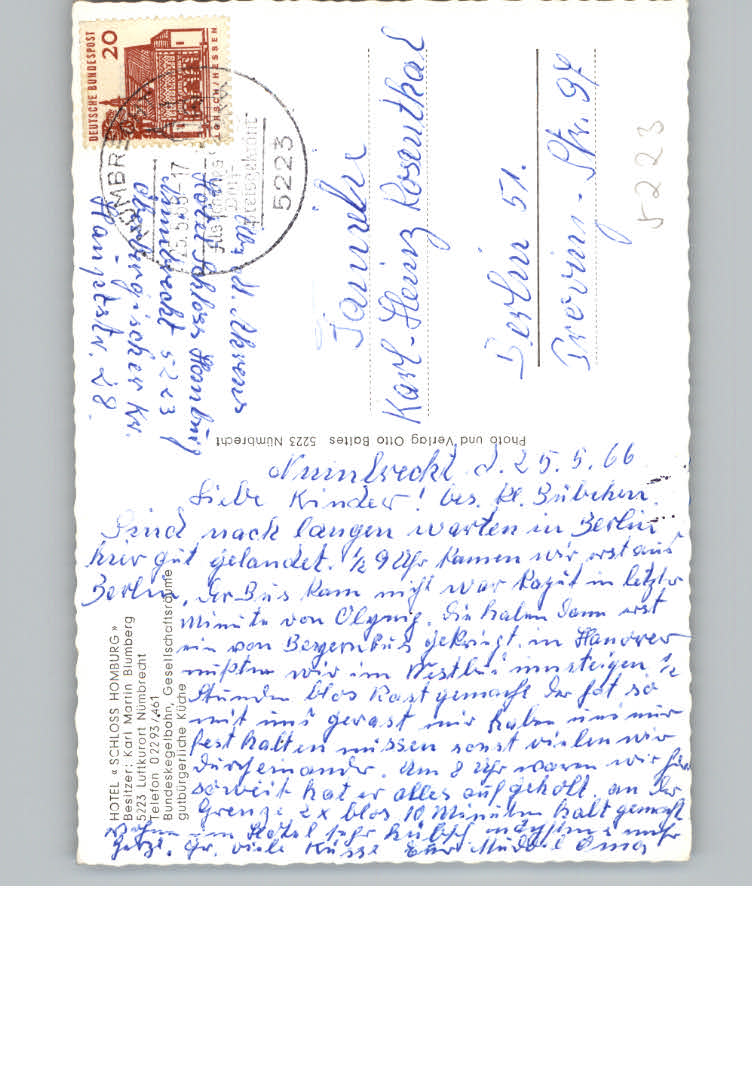 DEUTSCHE BUNDESPOST
20
LORSCH/HESSEN
NÜMBRE
17
5223
Abs. M. Ahrens
Hotel Schloss Homburg
Nümbrecht 5223
Oberbergischer Kr.
Hauptstr. 28.
Familie
Karl-Heinz Rosenthal
Berlin 51.
Provinz-Str. 97
5223
Photo und Verlag Otto Baltes 5223 Nümbrecht
HOTEL « SCHLOSS HOMBURG »
Besitzer: Karl Martin Blumberg
5223 Luftkurort Nümbrecht
Telefon 02293/461
Bundeskegelbahn, Gesellschaftsräume
gutbürgerliche Küche
Nümbrecht d. 25.5.66
Liebe Kinder! bes. kl. Bübchen.
Sind nach langen warten in Berlin
hier gut gelandet. ½ 9 Uhr kamen wir erst aus
Berlin, der Bus kam nicht war kaput in letzter
Minute von Olymp. Sie haben dann erst
ein von Bayernbus gekriegt, in Hanover
mußten wir im Westbus umsteigen ½
Stunde blos Rast gemacht der hat so
mit uns gerast wir haben uns nur
festhalten müssen sonst vielen wir
durcheinander. Um 8 Uhr waren wir hier
soweit hat er alles aufgeholt an der
Grenze 2 x blos 10 Minuten halt gemacht
wohnen im Hotel sehr hübsch mehr
Gr. viele Küsse Eure Mutti & Oma